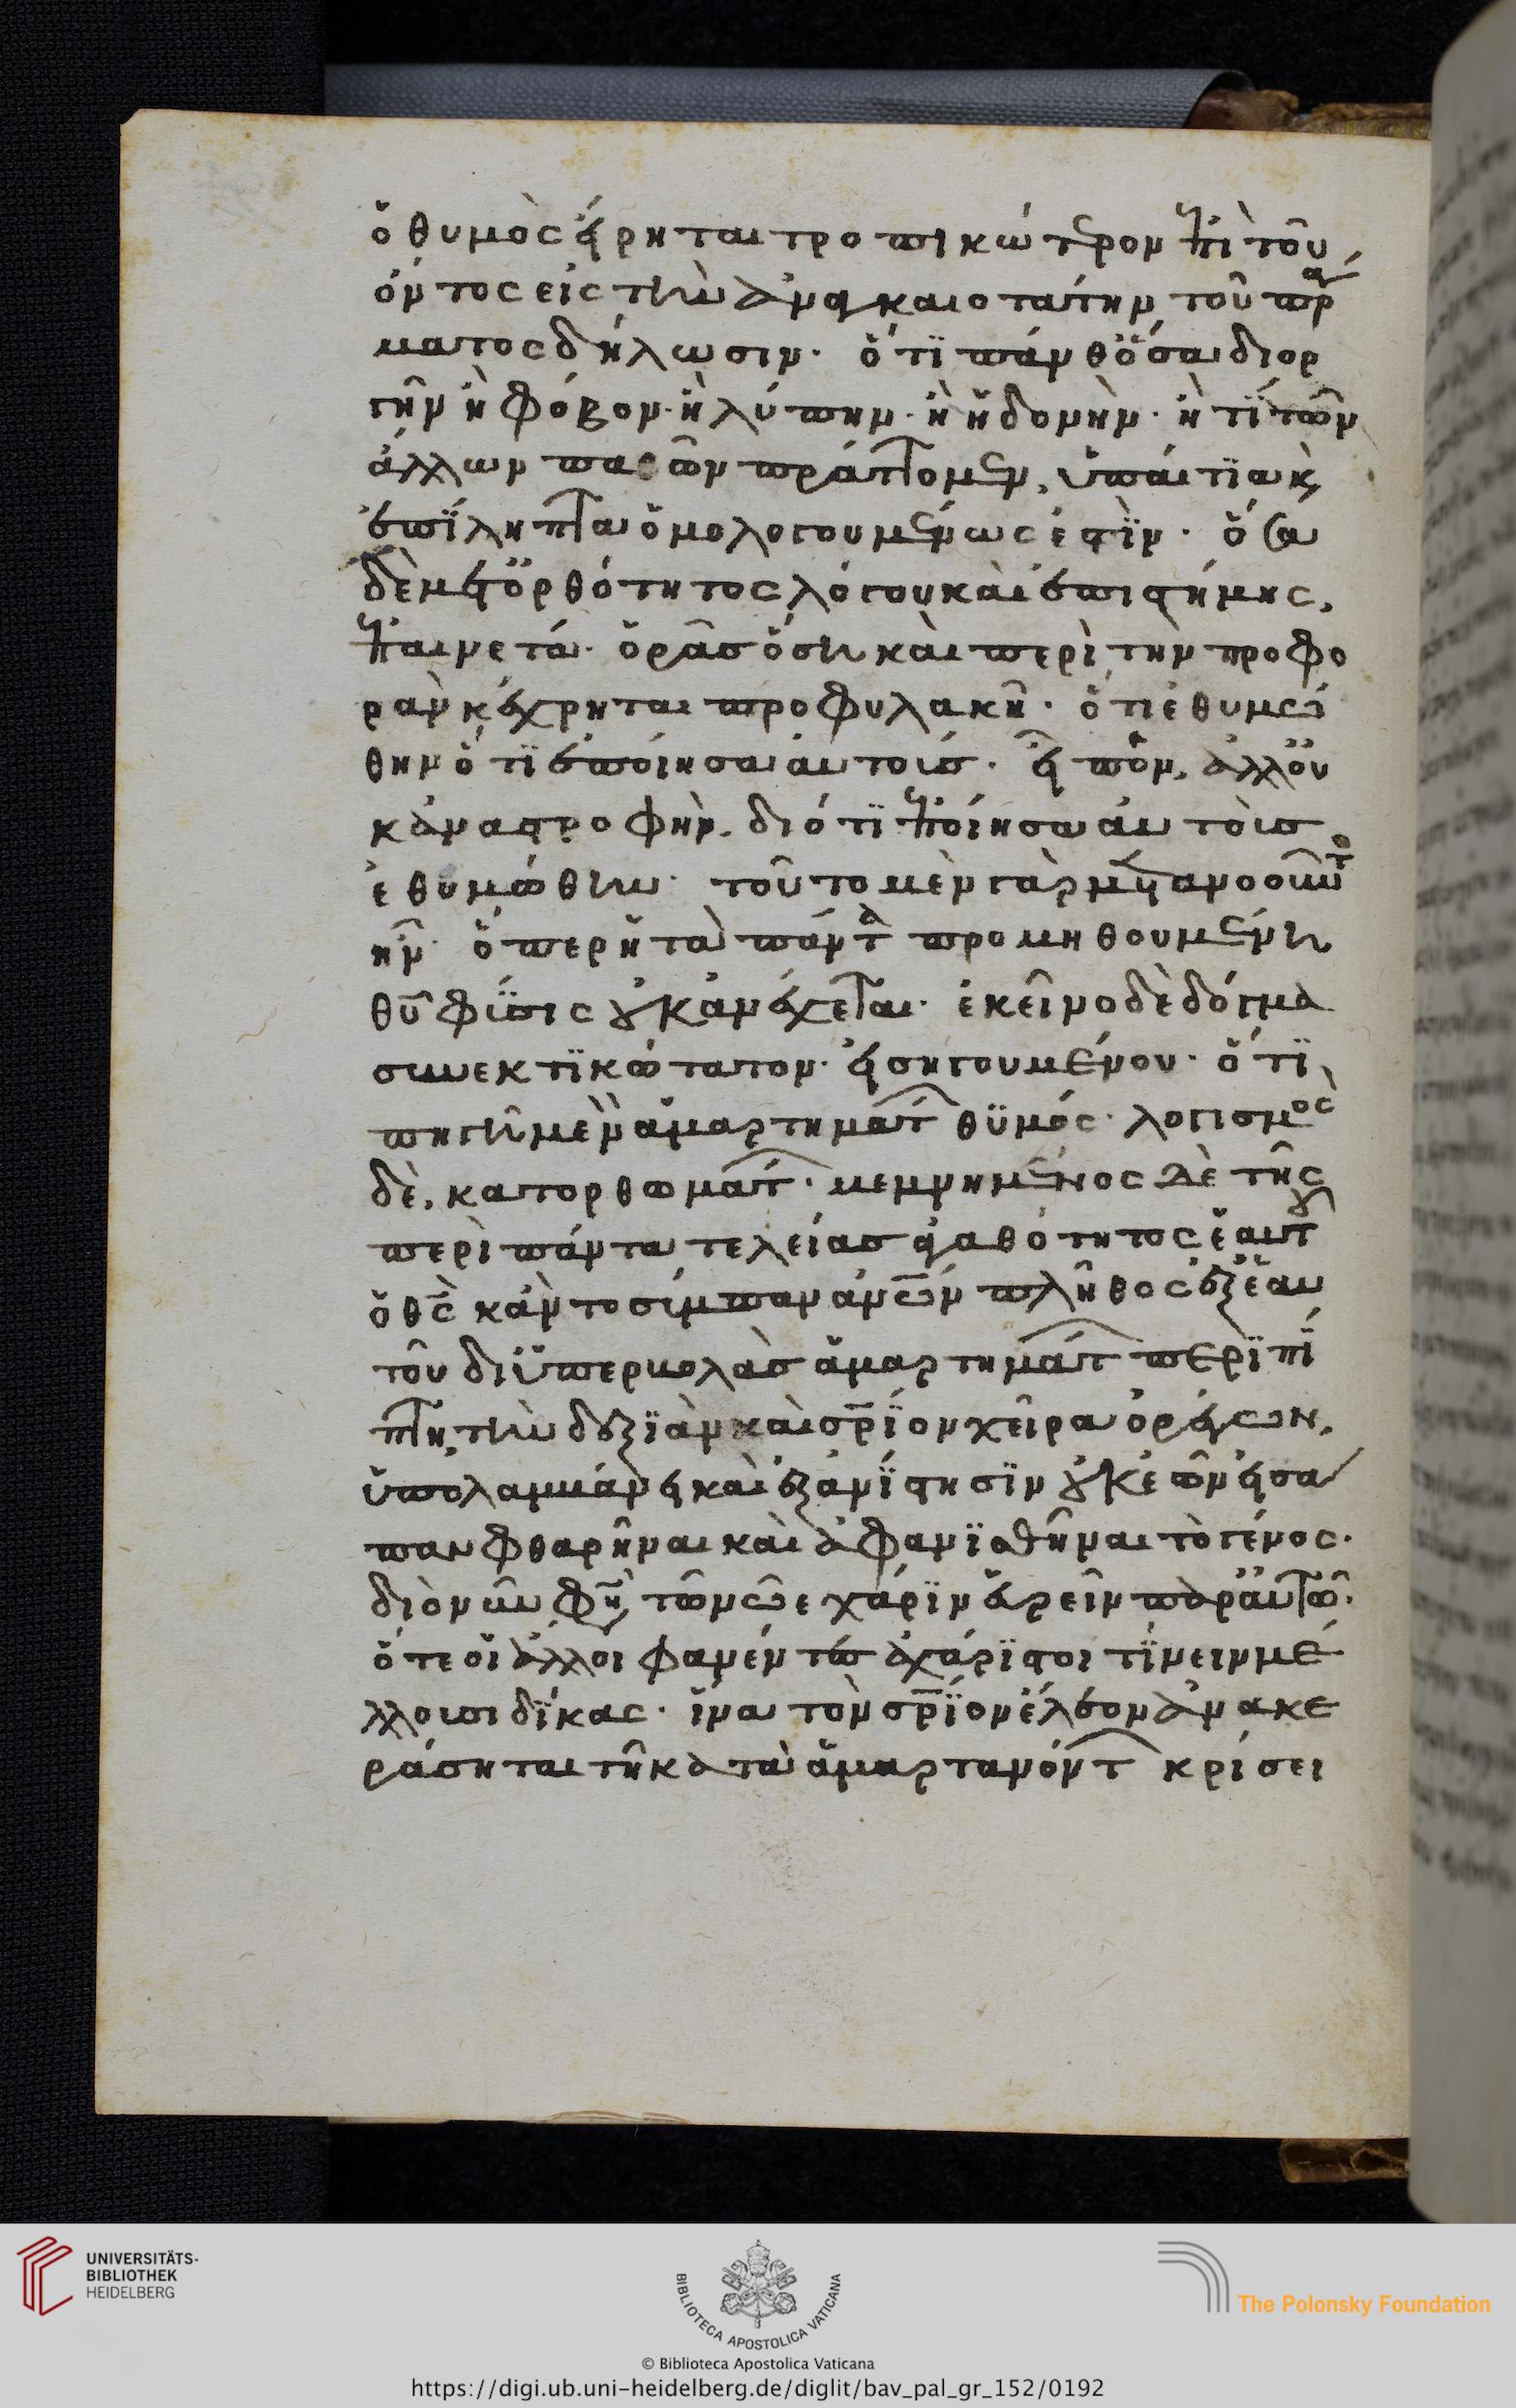 ὁ θυμὸς εἴρηται τροπικώτερον ἐπὶ τοῦ
ὄντος εἰς τὴν ἀναγκαιοτάτην τοῦ πρά
ματος δήλωσιν· ὅτι πάνθ' ὅσα δι' ὀρ
γὴν ἢ φόβον· ἢ λύπην· ἢ ἡδονὴν· ἤ τι τῶν
ἄλλων παθῶν πράττομεν, ὑπαίτια κ(αὶ)
ἐπίληπτα ὁμολογουμένως ἐστίν· ὅσα
δὲ μετ' ὀρθότητος λόγου καὶ ἐπιστήμης,
ἐπαινετά· ὁρᾶς ὅση καὶ περὶ τὴν προφο
ρὰν κέχρηται προφυλακῆ· ὅτι ἐθυμώ
θην ὅτι ἐποίησα αὐτοὺς· εἰπὼν, ἀλλ' οὐ
κἀναστροφὴν, διότι ἐποίησα αὐτοὺς
ἐθυμώθην· τοῦτο μὲν γὰρ μετανοοῦντο
ἦν· ὅπερ ἡ τὰ πάντα προμηθουμένη
θῦ φύσις οὐκ ἀνέχεται· ἐκεῖνο δὲ δόγμα
συνεκτικώτατον· εἰσηγουμένου· ὅτι
πηγὴ μὲν ἁμαρτημάτ(ων) θυμός· λογισμὸς
δὲ, κατορθωμάτ(ων)· μεμνημένος δὲ τῆς
περὶ πάντα τελείας ἀγαθότητος ἑαυτοῦ
ὁ θς̄ κἂν τὸ σύμπαν ἀνῶν πλῆθος ἐξ ἑαυ
τοῦ δι' ὑπερβολὰς ἁμαρτημάτ(ων) περιπί
πτη, τὴν δεξιὰν καὶ σρ̄ιον χεῖρα ὀρέγων,
ὑπολαμβάνει καὶ ἐξανίστησιν οὐκ ἐῶν εἰσά
παν φθαρῆναι καὶ ἀφανισθῆναι τὸ γένος·
διὸ νῦν φη(σὶ) τὸν νῶε χάριν εὑρεῖν παρ' αὐτῶ·
ὅτε οἱ ἄλλοι φανέντες ἀχάριστοι τίνειν μέ
λλουσι δίκας· ἵνα τὸν σρ̄ιον ἔλεον ἀνακε
ράσηται τῆ κατὰ ἁμαρτανόντ(ων) κρίσει
UNIVERSITÄTS-
BIBLIOTHEK
HEIDELBERG
BIBLIOTECA APOSTOLICA VATICANA
The Polonsky Foundation
© Biblioteca Apostolica Vaticana
https://digi.ub.uni-heidelberg.de/diglit/bav_pal_gr_152/0192